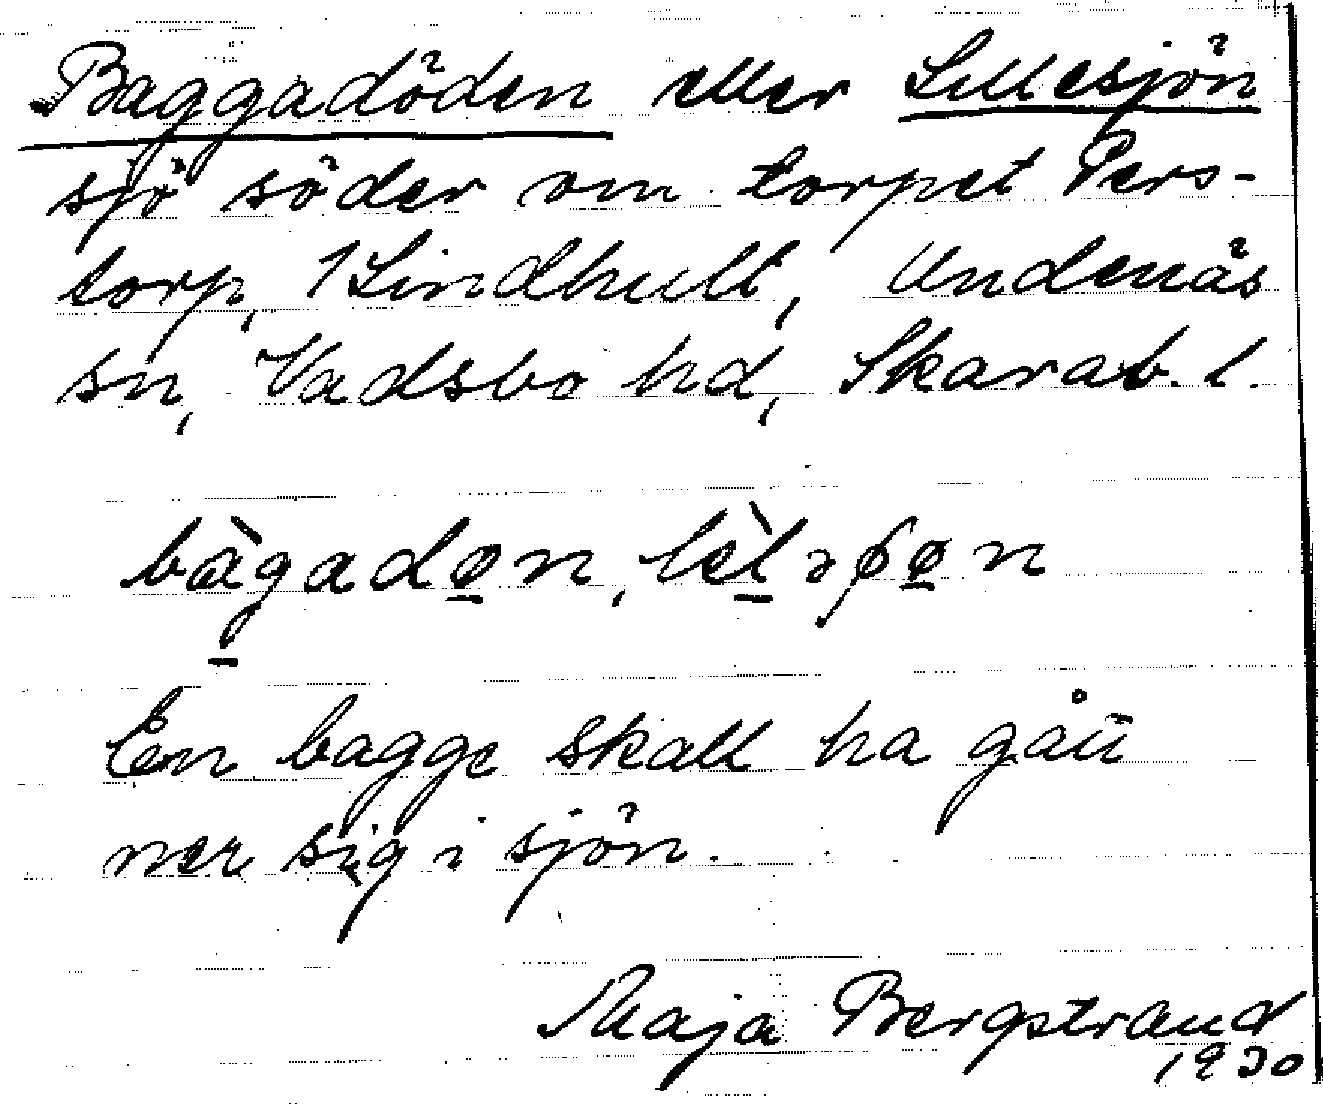 Baggadöden eller Lillesjön
sjö söder om torpet Pers-
torp, 1 Lindhult, Undenäs
sn, Vadsbo hd, Skarab. l.
bàgadøn, lèləʃøn
En bagge skall ha gått
ner sig i sjön.
Maja Bergstrand
1930